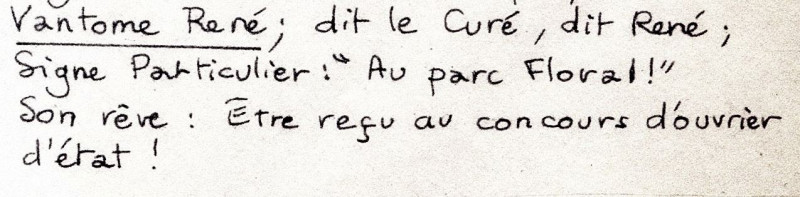 Vantome René; dit le Curé, dit René;
Signe Particulier : "Au parc Floral!"
Son rêve : Etre reçu au concours d'ouvrier
d'état !